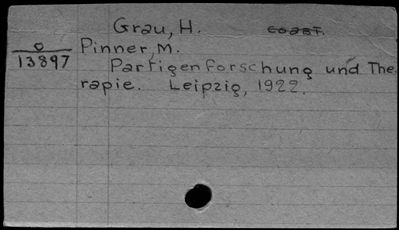 Grau, H.
O
13897
Pinner, M.
Partigenforschung und The-
rapie. Leipzig, 1922.